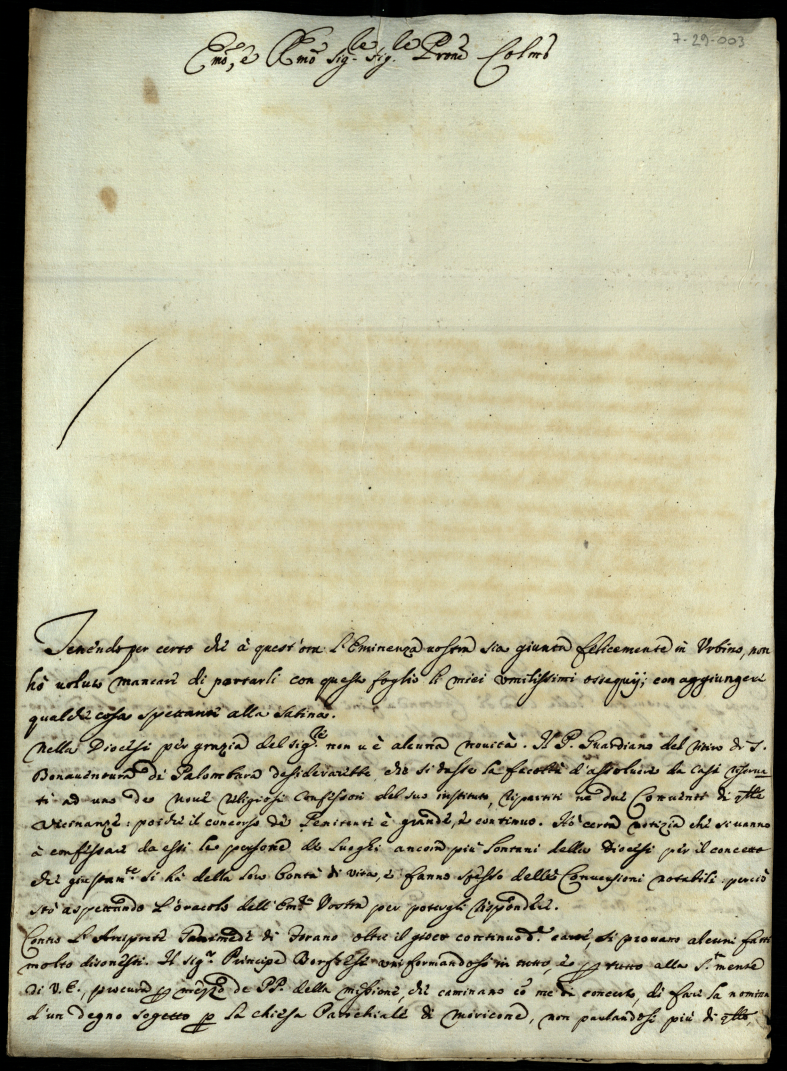 7-29-003
Emo, e Rmo Sig.re Sig.re Prone Colmo
Tenendo per certo che à quest'ora l'Eminenza vostra sia giunta felicemente in Urbino, non
hò voluto mancare di portarli con questo foglio li miei umilissimi ossequij; con aggiungere
qualche cosa spettante alla Sabina.
Nella Diocesi per grazia del Sig.re non v'è alcuna novità. Il P. Guardiano del Ritiro di S.
Bonaventura di Palombara desiderarebbe, che si dasse la facoltà d'assolvere da Casi riserva
ti ad uno de nove religiosi Confessori del suo instituto, ripartiti ne due Conventi di qlle
vicinanze: poiche il concorso de Penitenti è grande, e continuo. Hò certa notizia che si vanno
à confessare da essi le persone de luoghi ancora più lontani della Diocesi per il concetto
che giustam.te si hà della loro bontà di vita, e fanno spesso delle Conversioni notabili perciò
stò aspettando l'oracolo dell'Emza Vostra per potergli rispondere.
Contro l'Arciprete di Torano oltre il gioco continuo d. si provano alcuni fatti
molto disonesti. Il Sig.r Principe Borghese uniformandosi in tutto, e p tutto alla S.ta mente
di V.E., procura p mezzo de PP. della missione, che caminano cō me di concerto, di fare la nomina
d'un degno sogetto p la chiesa Parochiale di Moricone, non parlandosi più di qllo,